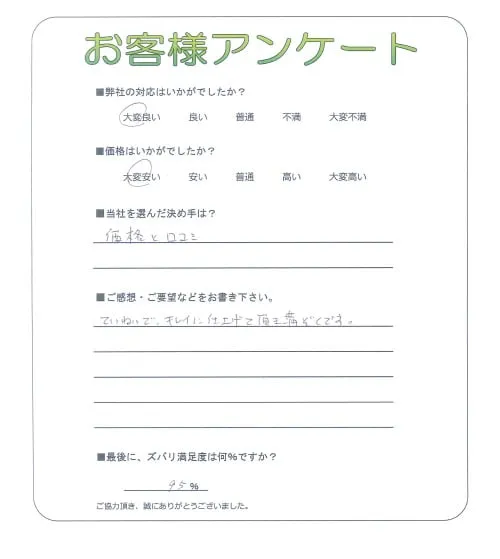 お客様アンケート
■弊社の対応はいかがでしたか？
大変良い 良い 普通 不満 大変不満
■価格はいかがでしたか？
大変安い 安い 普通 高い 大変高い
■当社を選んだ決め手は？
価格と口コミ
■ご感想・ご要望などをお書き下さい。
ていねいで、キレイに仕上げて頂き満ぞくです。
■最後に、ズバリ満足度は何%ですか？
95%
ご協力頂き、誠にありがとうございました。